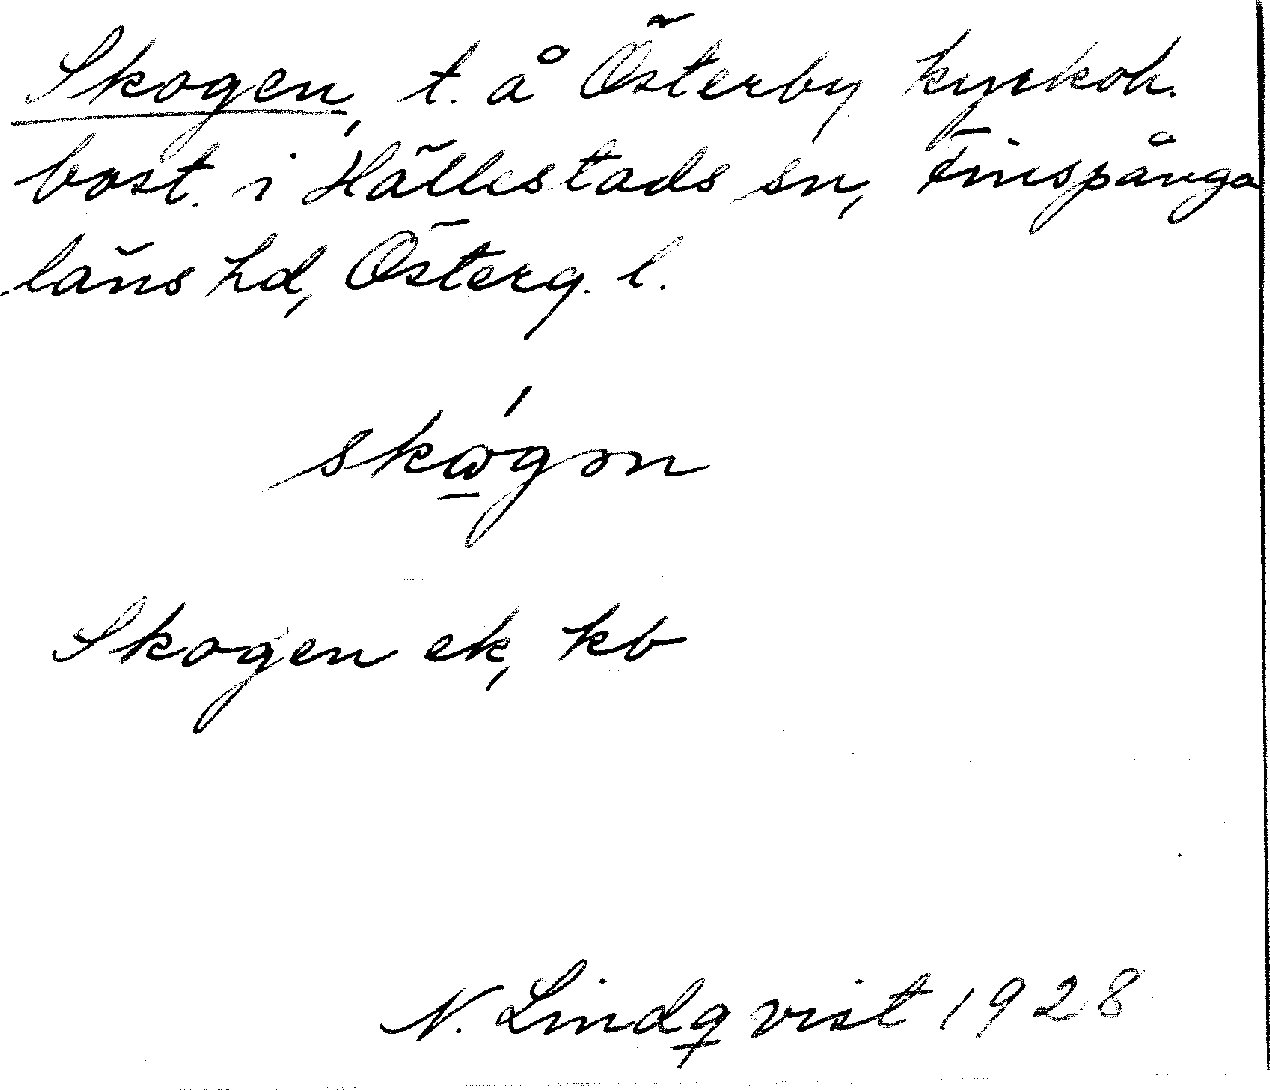 Skogen, t. å Österby kyrkoh.
bost. i Hällestads sn, Finspånga
läns hd, Österg. l.
skώ̲gən
Skogen ek, kb
N. Lindqvist 1928